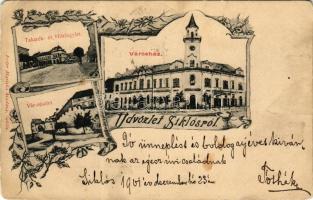 Takarék- és Hitelegylet.
Városháza.
Vár-részlet
Üdvözlet Siklósról
Jó ünneplést és boldog új évet kíván-
nak az egész úri családnak
Siklós 1901 év december hó 23án
Tóthék